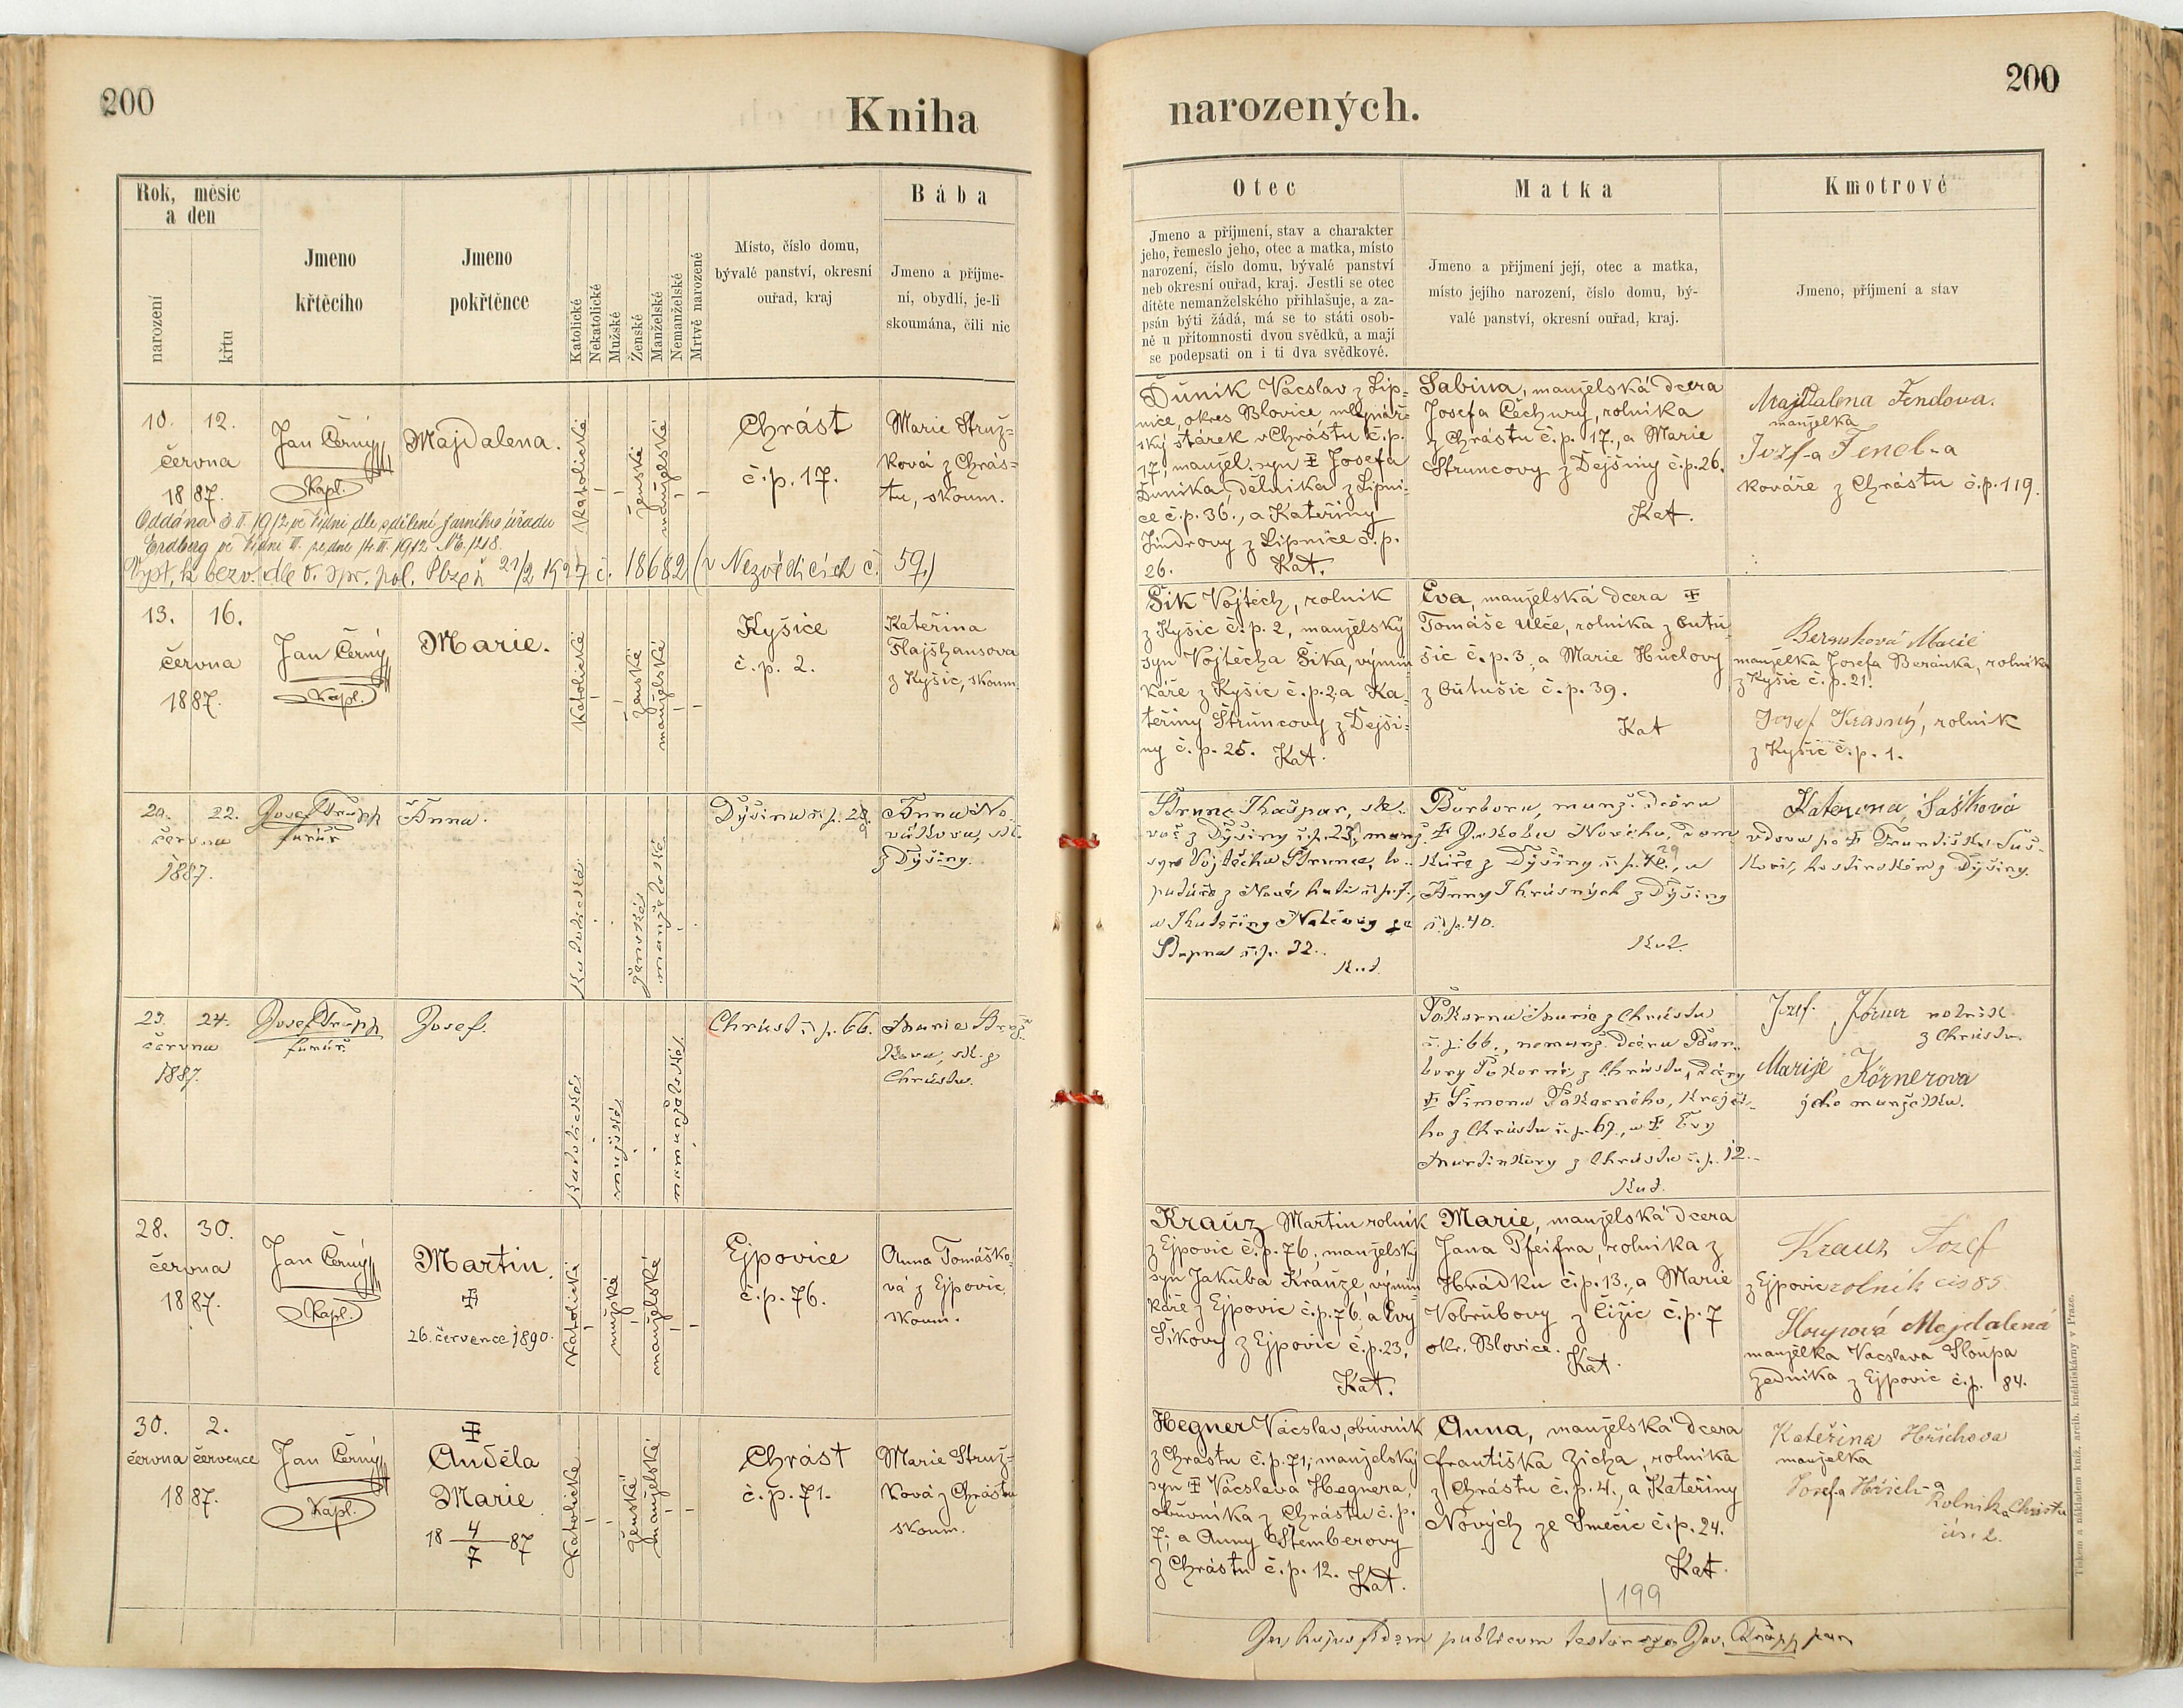 200
Kniha
Rok, měsíc
a den
narození
křtu
Jmeno
křtěcího
Jmeno
pokřtěnce
Katolické
Nekatolické
Mužské
Ženské
Manželské
Nemanželské
Mrtvě narozené
Místo, číslo domu,
bývalé panství, okresní
ouřad, kraj
Bába
Jmeno a příjme-
ní, obydlí, je-li
skoumána, čili nic
10. 12.
června
1887.
Jan Černý
Kapl.
Majdalena.
Katolické
ženské
manželské
Chrást
č. p. 17.
Marie Struž-
ková z Chrás-
tu, skoum.
Oddána II. 1912 ve Vídni dle sdělení farního úřadu
Erdberg ve Vídni III. ze dne 14. III. 1912 N.E. 1218.
Vyst. k bezv. dle o. spr. pol. Plzeň 21/2 1927 č. 18682 (v Nezvěsticích č. 59.)
13. 16.
června
1887.
Jan Černý
Kapl.
Marie.
Katolické
ženské
manželské
Kyšice
č. p. 2.
Kateřina
Flajšhansova
z Kyšic, skoum.
20. 22.
června
1887.
Josef
farář
Anna.
Katolické
ženské
manželské
Dýšina č. p. 29
Anna No-
váková, sk.
z Dýšiny.
23. 24.
června
1887.
Josef
farář.
Josef.
Katolické
mužské
nemanželské
Chrást č. p. 66.
Marie Struž-
kova, sk. z
Chrástu.
28. 30.
června
1887.
Jan Černý
Kapl.
Martin.
26. července 1890.
Katolické
mužské
manželské
Ejpovice
č. p. 76.
Anna Tomáško-
vá z Ejpovic,
skoum.
30. 2.
června července
1887.
Jan Černý
Kapl.
Anděla
Marie
18 4/7 87
Katolické
ženské
manželské
Chrást
č. p. 71.
Marie Struž-
ková z Chrástu
skoum.
200
narozených.
Otec
Jmeno a příjmení, stav a charakter
jeho, řemeslo jeho, otec a matka, místo
narození, číslo domu, bývalé panství
neb okresní ouřad, kraj. Jestli se otec
dítěte nemanželského přihlašuje, a za-
psán býti žádá, má se to státi osob-
ně u přítomnosti dvou svědků, a mají
se podepsati on i ti dva svědkové.
Matka
Jmeno a přijmení její, otec a matka,
místo jejího narození, číslo domu, bý-
valé panství, okresní ouřad, kraj.
Kmotrové
Jmeno, příjmení a stav
Duník Vácslav z Lip-
nice, okres Blovice mlynář-
ský stárek v Chrástu č. p.
17, manžel. syn Josefa
Duníka, dělníka z Lipni-
ce č. p. 36., a Kateřiny
Jindrovy z Lipnice č. p.
26. Kat.
Sabina, manželská dcera
Josefa Čechury, rolníka
z Chrástu č. p. 17., a Marie
Štruncovy z Dejšiny č. p. 26.
Kat.
Majdalena Fendova.
manželka
Jozf-a Fencl-a
kováře z Chrástu č. p. 119.
Šik Vojtěch, rolník
z Kyšic č. p. 2, manželský
syn Vojtěcha Šika, výmin-
káře z Kyšic č. p. 2, a Ka-
teřiny Štruncovy z Dejši-
ny č. p. 25. Kat.
Eva, manželská dcera
Tomáše Ulče, rolníka z Outu-
šic č. p. 3, a Marie Hudovy
z Outušic č. p. 39.
Kat
Beránková Marie
manželka Josefa Beránka, rolníka
z Kyšic č. p. 21.
Josef Krasný, rolník
z Kyšic č. p. 1.
Strunc Kašpar,
z Dýšiny č. p. 29, manž.
syn Vojtěcha Strunce,
z Nové huti č. p. 7,
a Kateřiny ze
Stupna č. p. 32.
Kat.
Barbora, manž. dcera
Jakoba Nováka, dom-
káře z Dýšiny č. p. 29, a
Anny Krásných z Dýšiny
č. p. 40.
Kat.
Katerzina, Sašková
vdova po Františku Saš-
kovi, hostinském z Dýšiny.
Pokorna Marie z Chrástu
č. p. 66., nemanž. dcera Bar-
bory Pokorné z Chrástu, dcery
Šimona Pokorného, krejčí-
ho z Chrástu č. p. 67., a Evy
Martinkovy z Chrástu č. p. 12.
Kat.
Jozef. Körner rolník
z Chrástu.
Marije Körnerova
jeho manželka.
Krauz Martin rolník
z Ejpovic č. p. 76, manželský
syn Jakuba Krauze, výmin-
káře z Ejpovic č. p. 76, a Evy
Šikovy z Ejpovic č. p. 23,
Kat.
Marie, manželská dcera
Jana Pfeifra, rolníka z
Hrádku č. p. 13., a Marie
Vobrubovy z Čižic č. p. 7
okr. Blovice.
Kat.
Krauz Jozef
z Ejpovic rolník cis 85.
Sloupová Majdalená
manželka Vacslava Sloupa
zedníka z Ejpovic č. p. 84.
Hegner Vácslav, obuvník
z Chrástu č. p. 71, manželský
syn Vácslava Hegnera,
obuvníka z Chrástu č. p.
7; a Anny Štemberovy
z Chrástu č. p. 12. Kat.
Anna, manželská dcera
Františka Zícha, rolníka
z Chrástu č. p. 4., a Kateřiny
Nových ze Smečic č. p. 24.
Kat.
Kateřina Hřichova
manželka
Josefa Hřich-a
Rolníka Chrástu
čís. 2.
199
In hujus fidem publicam testor
Tiskem a nákladem kníž. arcib. knihtiskárny v Praze.